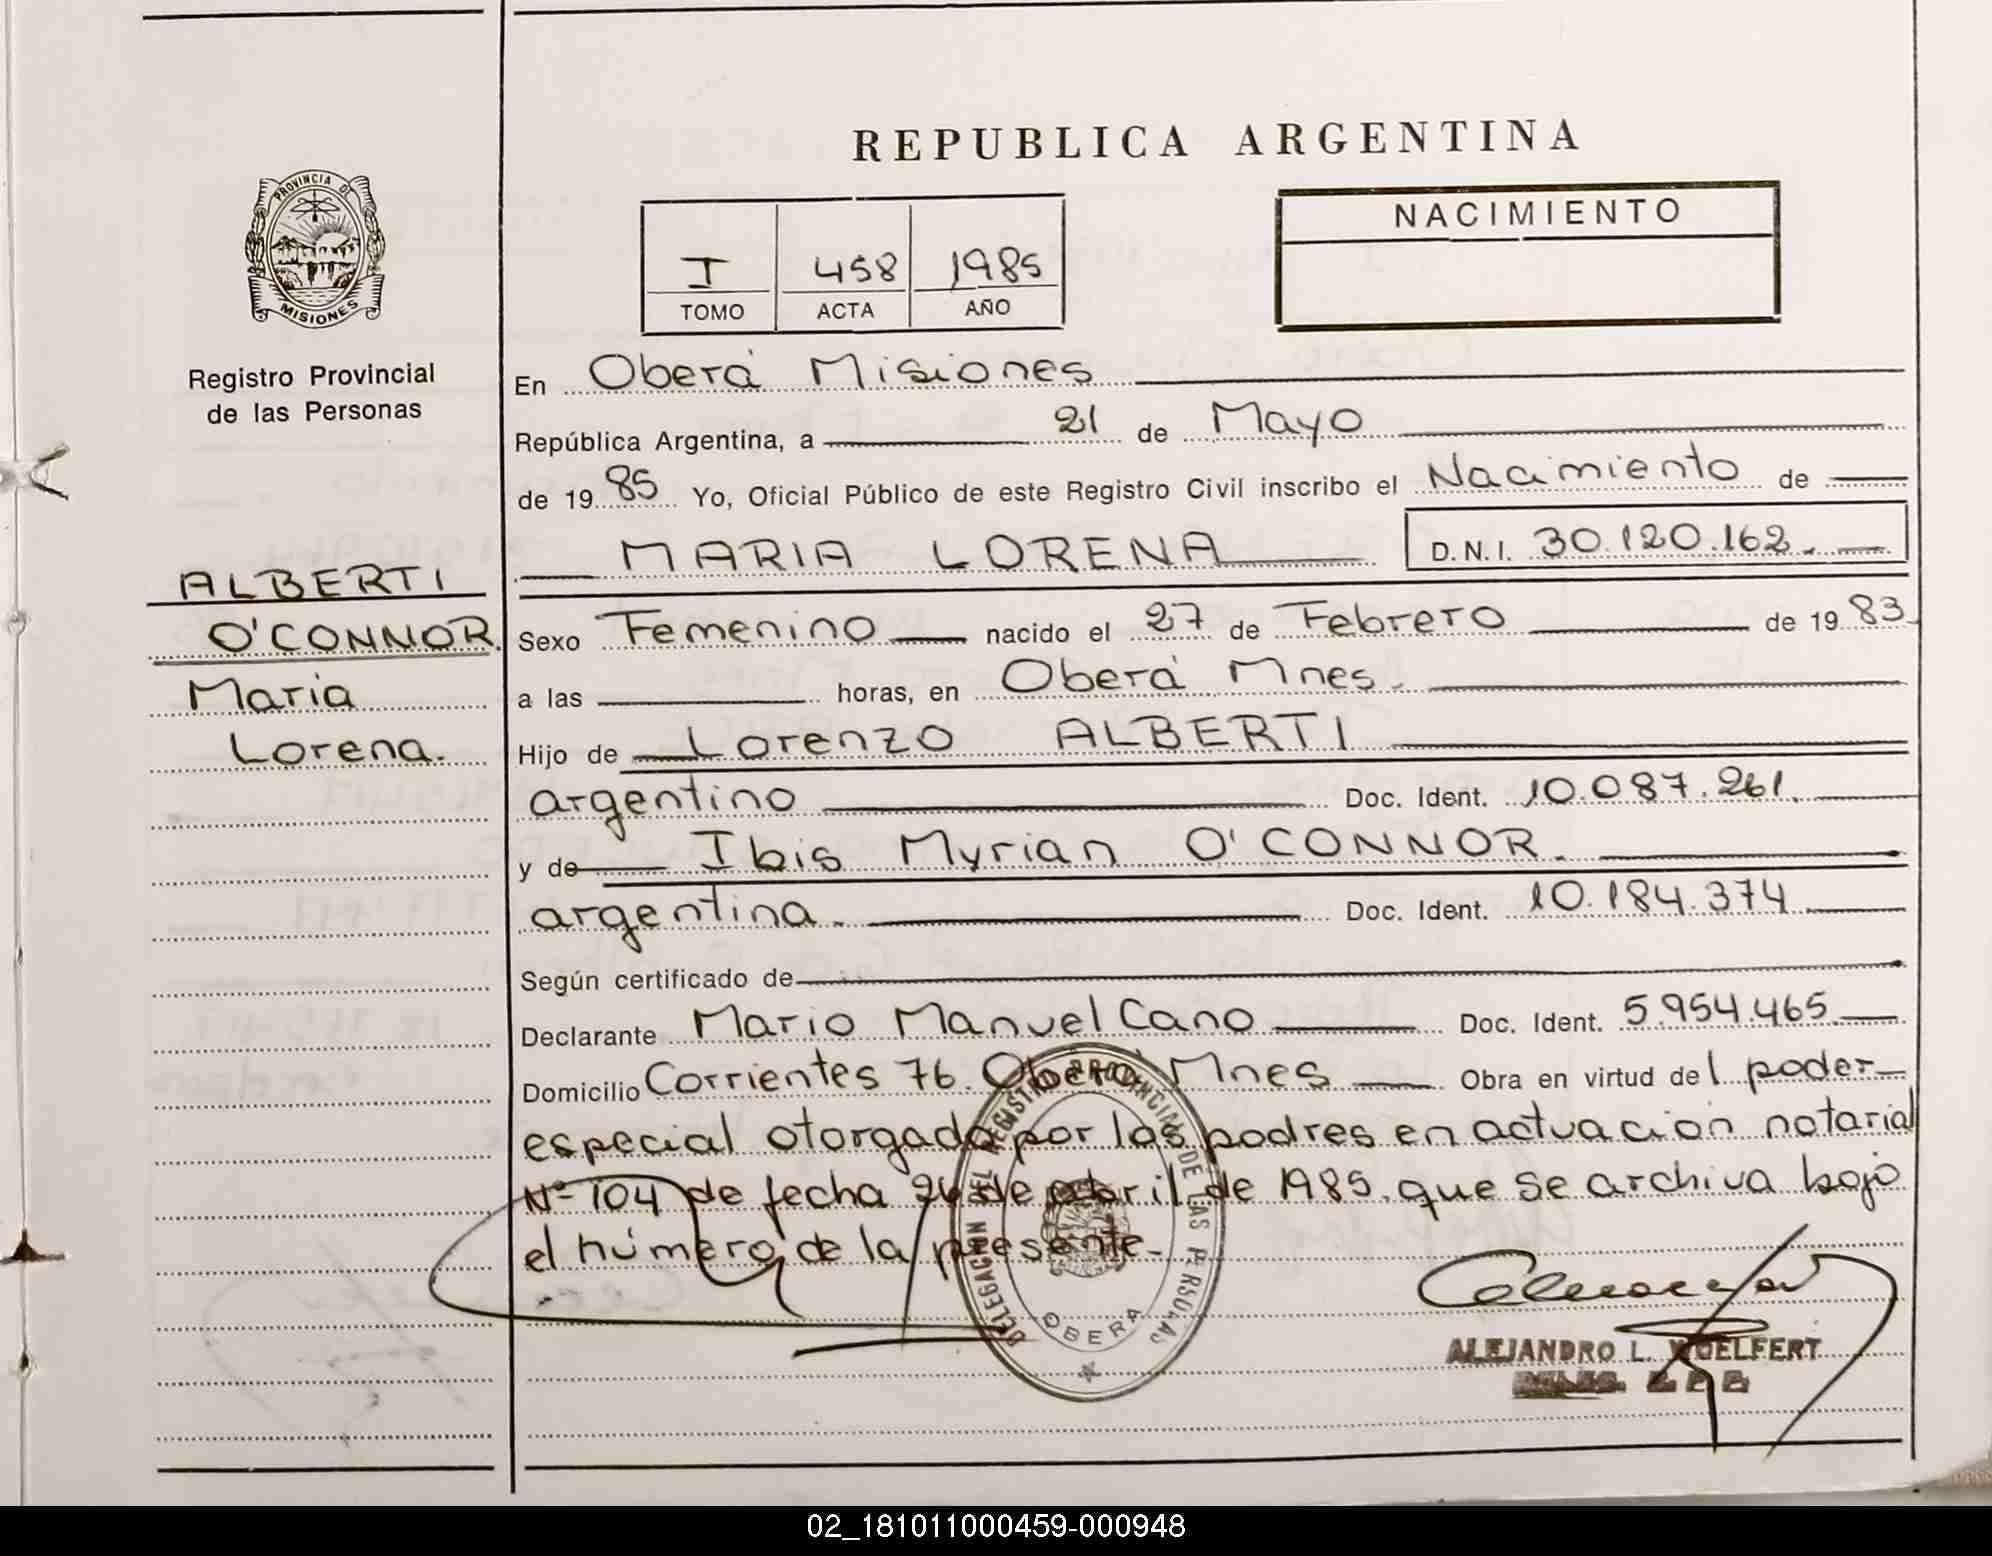 REPUBLICA ARGENTINA
PROVINCIA DE
MISIONES
Registro Provincial
de las Personas
ALBERTI
O'CONNOR
Maria
Lorena.
I 458 1985
TOMO ACTA AÑO
NACIMIENTO
En Oberá Misiones
República Argentina, a 21 de Mayo
de 19 85 Yo, Oficial Público de este Registro Civil inscribo el Nacimiento de
MARIA LORENA D.N.I. 30.120.162.
Sexo Femenino nacido el 27 de Febrero de 19 83
a las horas, en Oberá Mnes.
Hijo de Lorenzo ALBERTI
argentino Doc. Ident. 10.087.261.
y de Ibis Myrian O'CONNOR.
argentina. Doc. Ident. 10.184.374
Según certificado de
Declarante Mario Manuel Cano Doc. Ident. 5.954.465
Domicilio Corrientes 76. Oberá Mnes Obra en virtud del poder
especial otorgado por los padres en actuación notarial
Nº 104 de fecha de abril de 1985. que se archiva bajo
el número de la presente.
DELEGACION DEL REGISTRO PROVINCIAL DE LAS PERSONAS
OBERA
ALEJANDRO L. WOELFERT
02_181011000459-000948